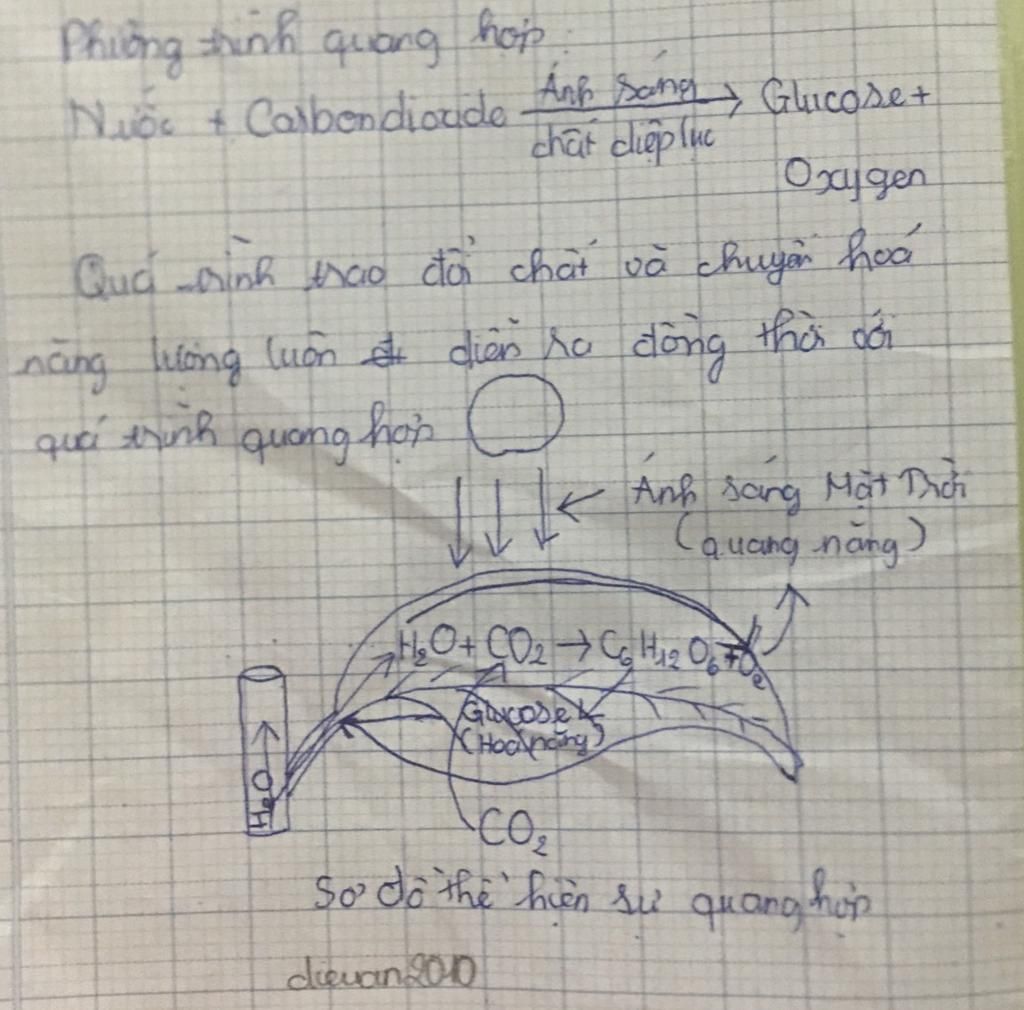 Phương trình quang hợp:
Nước + Carbondioxide Ánh sáng → Glucose +
chất diệp lục
Oxygen
Quá trình trao đổi chất và chuyển hoá
năng lượng luôn diễn ra đồng thời với
quá trình quang hợp
Ánh sáng Mặt Trời
(quang năng)
H₂O + CO₂ → C₆H₁₂O₆ + O₂
Glucose
(Hoá năng)
H₂O
CO₂
Sơ đồ thể hiện sự quang hợp
dieuan2010